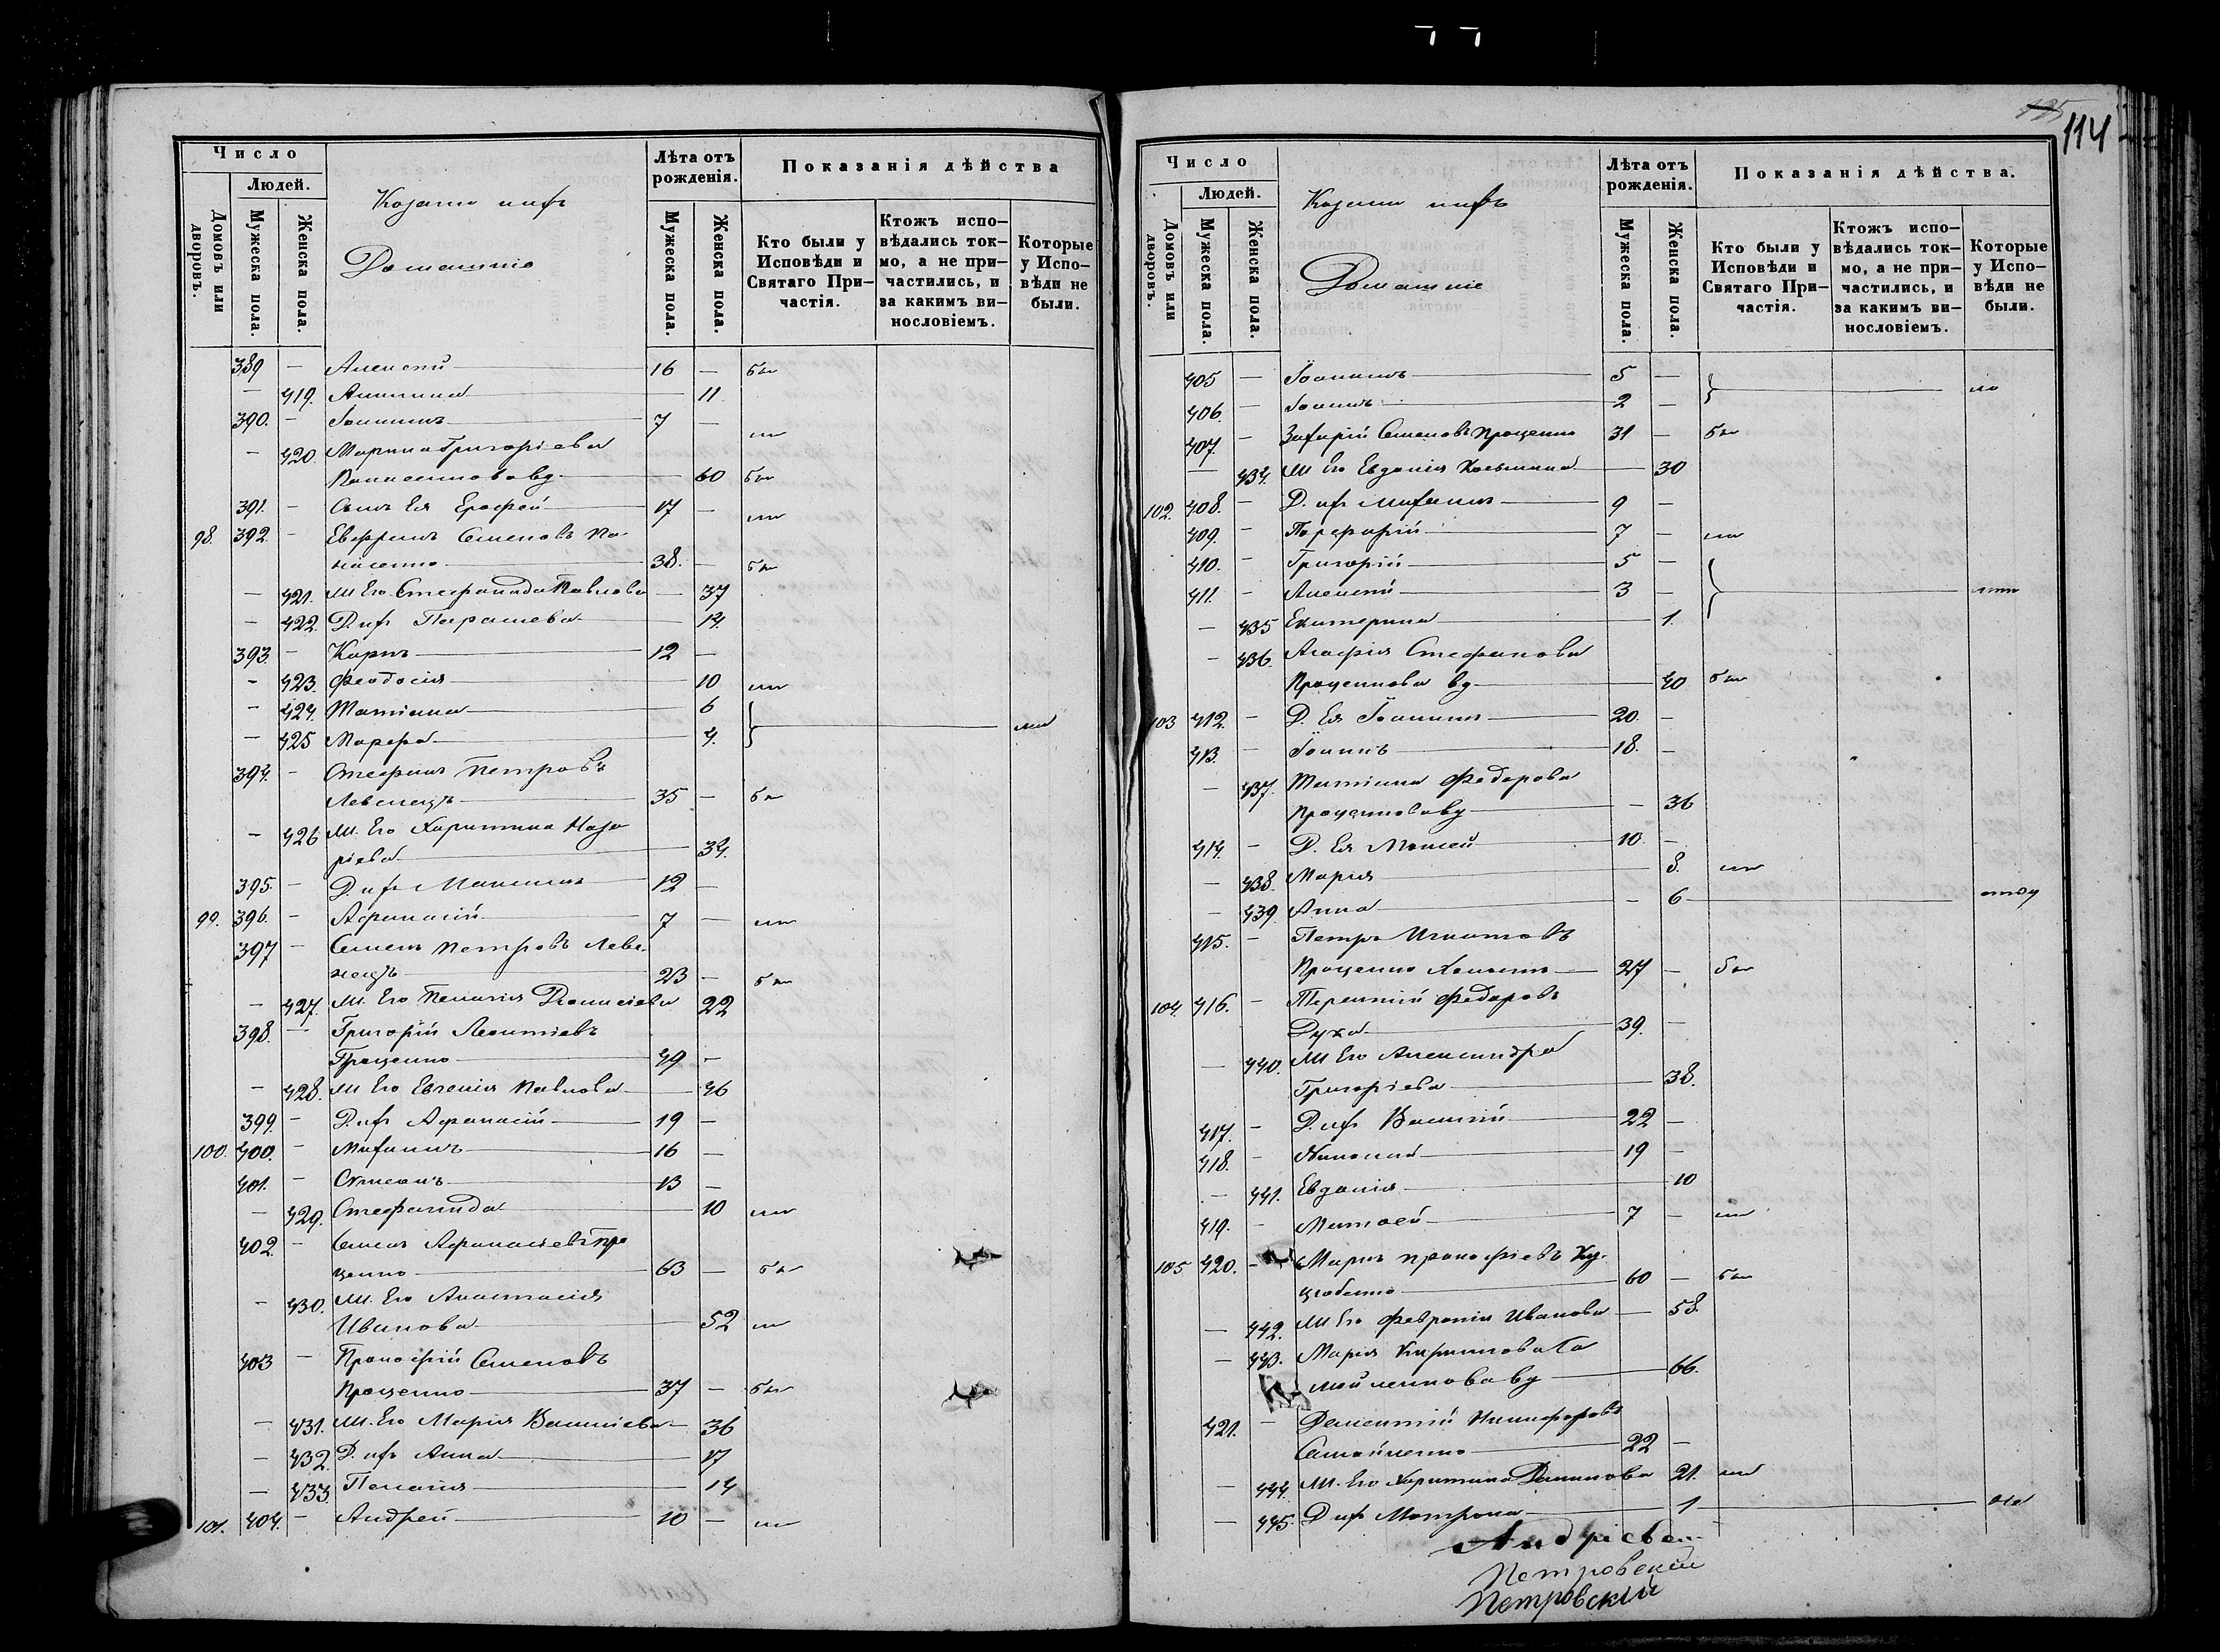 Число
Людей.
Домовъ или дворовъ.
Мужеска пола.
Женска пола.
Козаки ихъ
Домашніе
Лѣта отъ рожденія.
Мужеска пола.
Женска пола.
Показанія дѣйства
Кто были у Исповѣди и Святаго При–частія.
Ктожъ испо–вѣдались ток–мо, а не при–частились, и за какимъ ви–нословіемъ.
Которые у Испо–вѣди не были.
389 — Алексѣй 16 —
— 419. Акилина — 11
390. — Іоаннъ 7 —
— 420. Марина Григоріева
вд — 60
391. — Сынъ Ея Ерофей 17 —
98. 392. — Евфримъ Семеновъ Па-
насенко 38. —
— 421. Ж Его Стефанида Павлова — 37
— 422. Д. ихъ Параскева — 14.
393. — Карпъ 12 —
— 423. Феодосія — 10
— 424. Татіана 6
— 425 Марфа 4.
394. — Стефанъ Петровъ
Левенецъ 35 —
— 426 Ж. Его Харитина Наза
ріева — 34.
395. — Д. ихъ Максимъ 12 —
99. 396. — Афанасій 7 —
397 — Семенъ Петровъ Леве-
нецъ 23 —
— 427. Ж. Его Пелагія Діонисіева 22
398. — Григорій Леонтіевъ
Проценко 49 —
— 428. Ж Его Евгенія Павлова — 46
399. — Д. ихъ Афанасій 19 —
100. 400. — Михаилъ 16 —
401. — Стефанъ 13 —
— 429. Стефанида — 10
402. — Семенъ Афанасіевъ Про
ценко 63 —
— 430. Ж. Его Анастасія
Иванова — 52
403 — Прокофій Семеновъ
Проценко 37 —
— 431. Ж. Его Марія Василіева 36
— 432. Д. ихъ Анна — 17
— 433. Пелагія — 14
101. 404. — Андрей 10 —
135
114
Число
Людей.
Домовъ или дворовъ.
Мужеска пола.
Женска пола.
Козаки ихъ
Домашніе
Лѣта отъ рожденія.
Мужеска пола.
Женска пола.
Показанія дѣйства.
Кто были у Исповѣди и Святаго При–частія.
Ктожъ испо–вѣдались ток–мо, а не при–частились, и за какимъ ви–нословіемъ.
Которые у Испо–вѣди не были.
405 — Іоаннъ 5 —
406. — Іоаннъ 2 —
407. — Захарій Семеновъ Проценко 31 —
— 434. Ж Его Евдокія Козьмина — 30
102. 408. — Д. ихъ Михаилъ 9 —
409. — Порфирій 7 —
410. — Григорій 5 —
411. — Алексѣй 3 —
— 435 Екатерина — 1.
— 436. Агафія Стефанова
Проценкова вд — 40
103 412. — Д. Ея Іоаннъ 20. —
413. — Іоаннъ 18. —
— 437. Татіана Федорова
Проценкова вд — 36
414. — Д. Ея Моисей 10. —
— 438. Марія — 8.
— 439. Анна — 6
415. — Петръ Игнатовъ
Проценко 27 —
104. 416. — Терентій Федоровъ
Духа 39. —
— 440. Ж Его Александра
Григоріева — 38.
417. — Д. ихъ Василій 22 —
418. — Николай 19 —
— 441. Евдокія — 10
419. — Матвей 7 —
105 420. — Маркъ Прокофіевъ
60 —
— 442. Ж Его Февронія Иванова — 58.
— 443. Марія Кириллова Са
мойленкова вд — 66.
421. — Дементій Никифоровъ
Самойленко 22 —
— 444. Ж. Его Харитина Данилова 21.
— 445. Д ихъ Матрона — 1
Петровскій
Петровскій